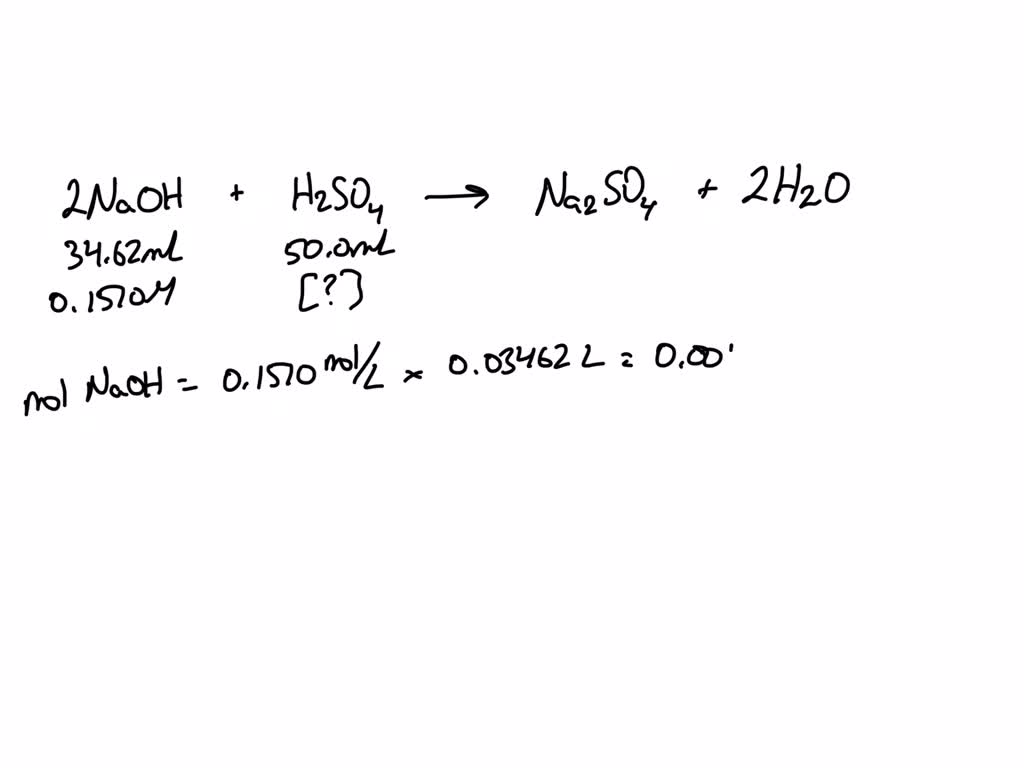 2NaOH + H2SO4 → Na2SO4 + 2H2O
34.62mL 50.0mL
0.1510M [?]
mol NaOH = 0.1510 mol/L × 0.03462 L = 0.00